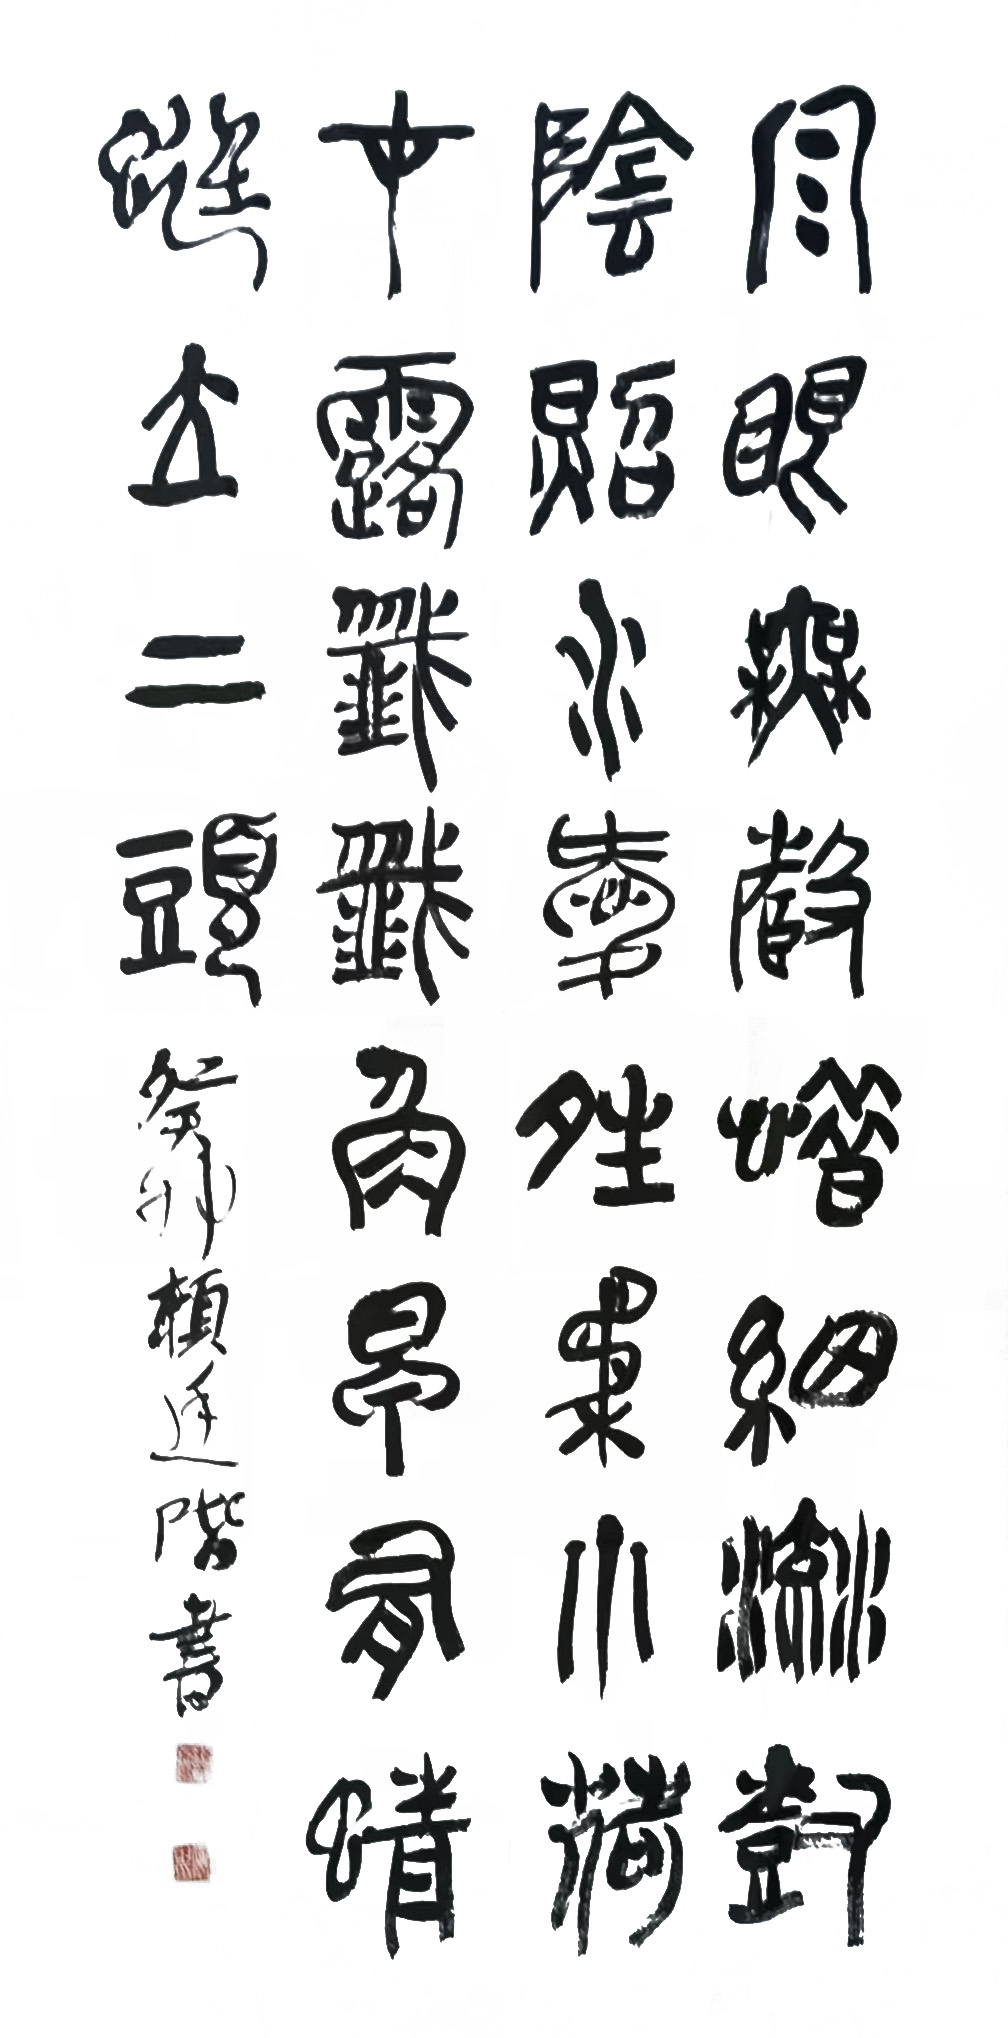 泉眼無聲惜細流樹
陰照水愛晴柔小荷
才露尖尖角早有蜻
蜓立上頭 癸卯賴廷階書